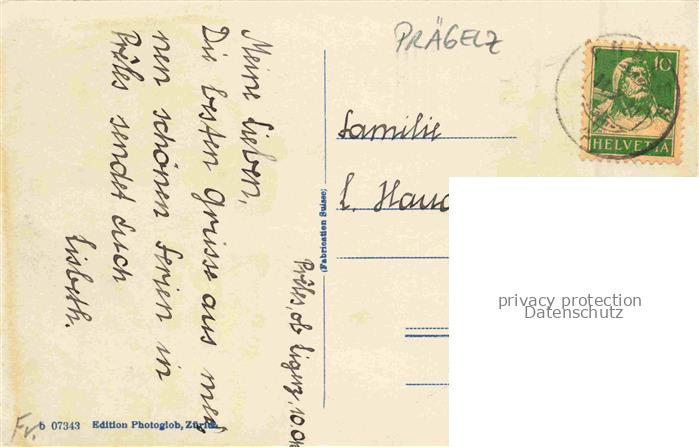 PRÄGELZ
10
HELVETIA
Meine Lieben,
Die besten Grüsse aus mei
nen schönen Ferien in
Prêles sendet Euch
Lisbeth.
Prêles, ob Ligerz, 10.
(Fabrication Suisse)
Familie
privacy protection
Datenschutz
Fr.
b 07343 Edition Photoglob, Zürich